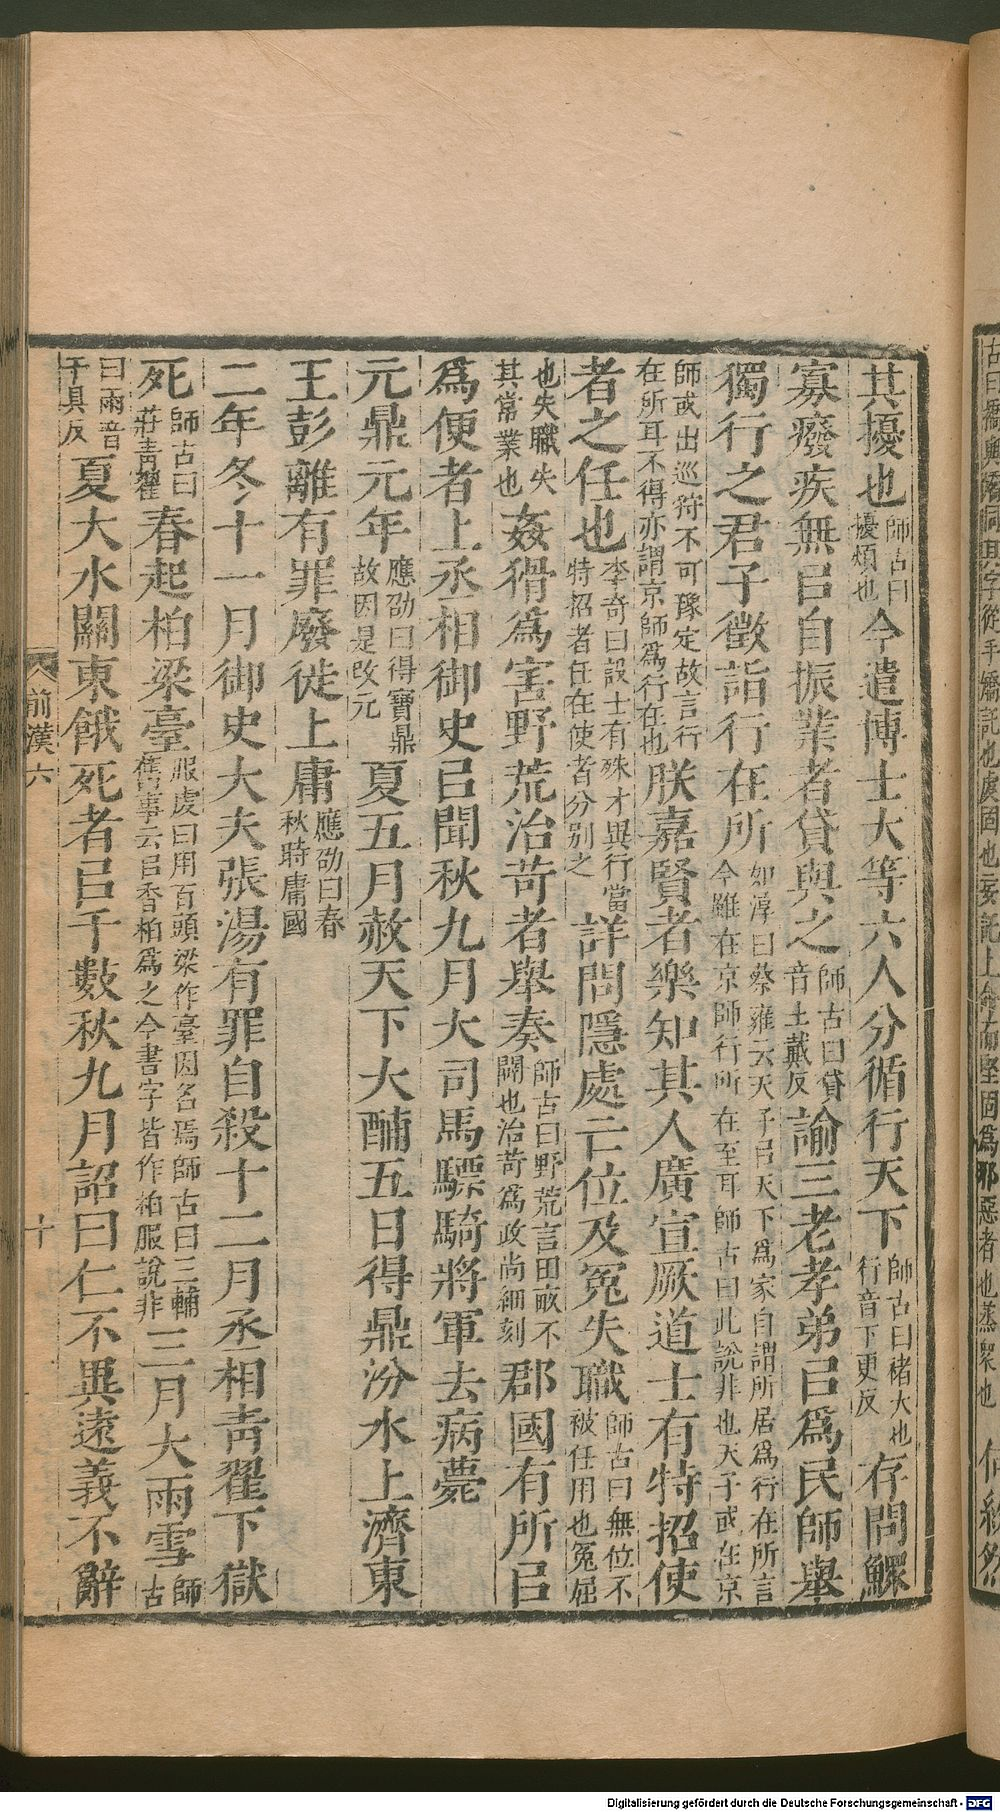 其擾也師古曰擾煩也今遣博士大等六人分循行天下師古曰褚大也行音下更反存問鰥
寡癈疾無㠯自振業者貸與之師古曰貸音土戴反諭三老孝弟㠯爲民師舉
獨行之君子徵詣行在所如淳曰蔡雍云天子㠯天下爲家自謂所居爲行在所言今雖在京師行所在至耳師古曰此說非也天子或在京
師或出巡狩不可豫定故言行在所耳不得亦謂京師爲行在也朕嘉賢者樂知其人廣宣厥道士有特招使
者之任也李奇曰設士有殊才異行當特招者任在使者分別之詳問隱處亡位及冤失職師古曰無位不被任用也冤屈
也失職失其常業也姦猾爲害野荒治苛者舉奏師古曰野荒言田畝不闢也治苛爲政尚細刻郡國有所㠯
爲便者上丞相御史㠯聞秋九月大司馬驃騎將軍去病薨
元鼎元年應劭曰得寶鼎故因是改元夏五月赦天下大酺五日得鼎汾水上濟東
王彭離有罪廢徙上庸應劭曰春秋時庸國
二年冬十一月御史大夫張湯有罪自殺十二月丞相青翟下獄
死師古曰莊青翟春起柏梁臺服虔曰用百頭梁作臺因名焉師古曰三輔舊事云㠯香柏爲之今書字皆作柏服說非三月大雨雪師古
曰雨音于具反夏大水關東餓死者㠯千數秋九月詔曰仁不異遠義不辭
前漢六
十
Digitalisierung gefördert durch die Deutsche Forschungsgemeinschaft - DFG